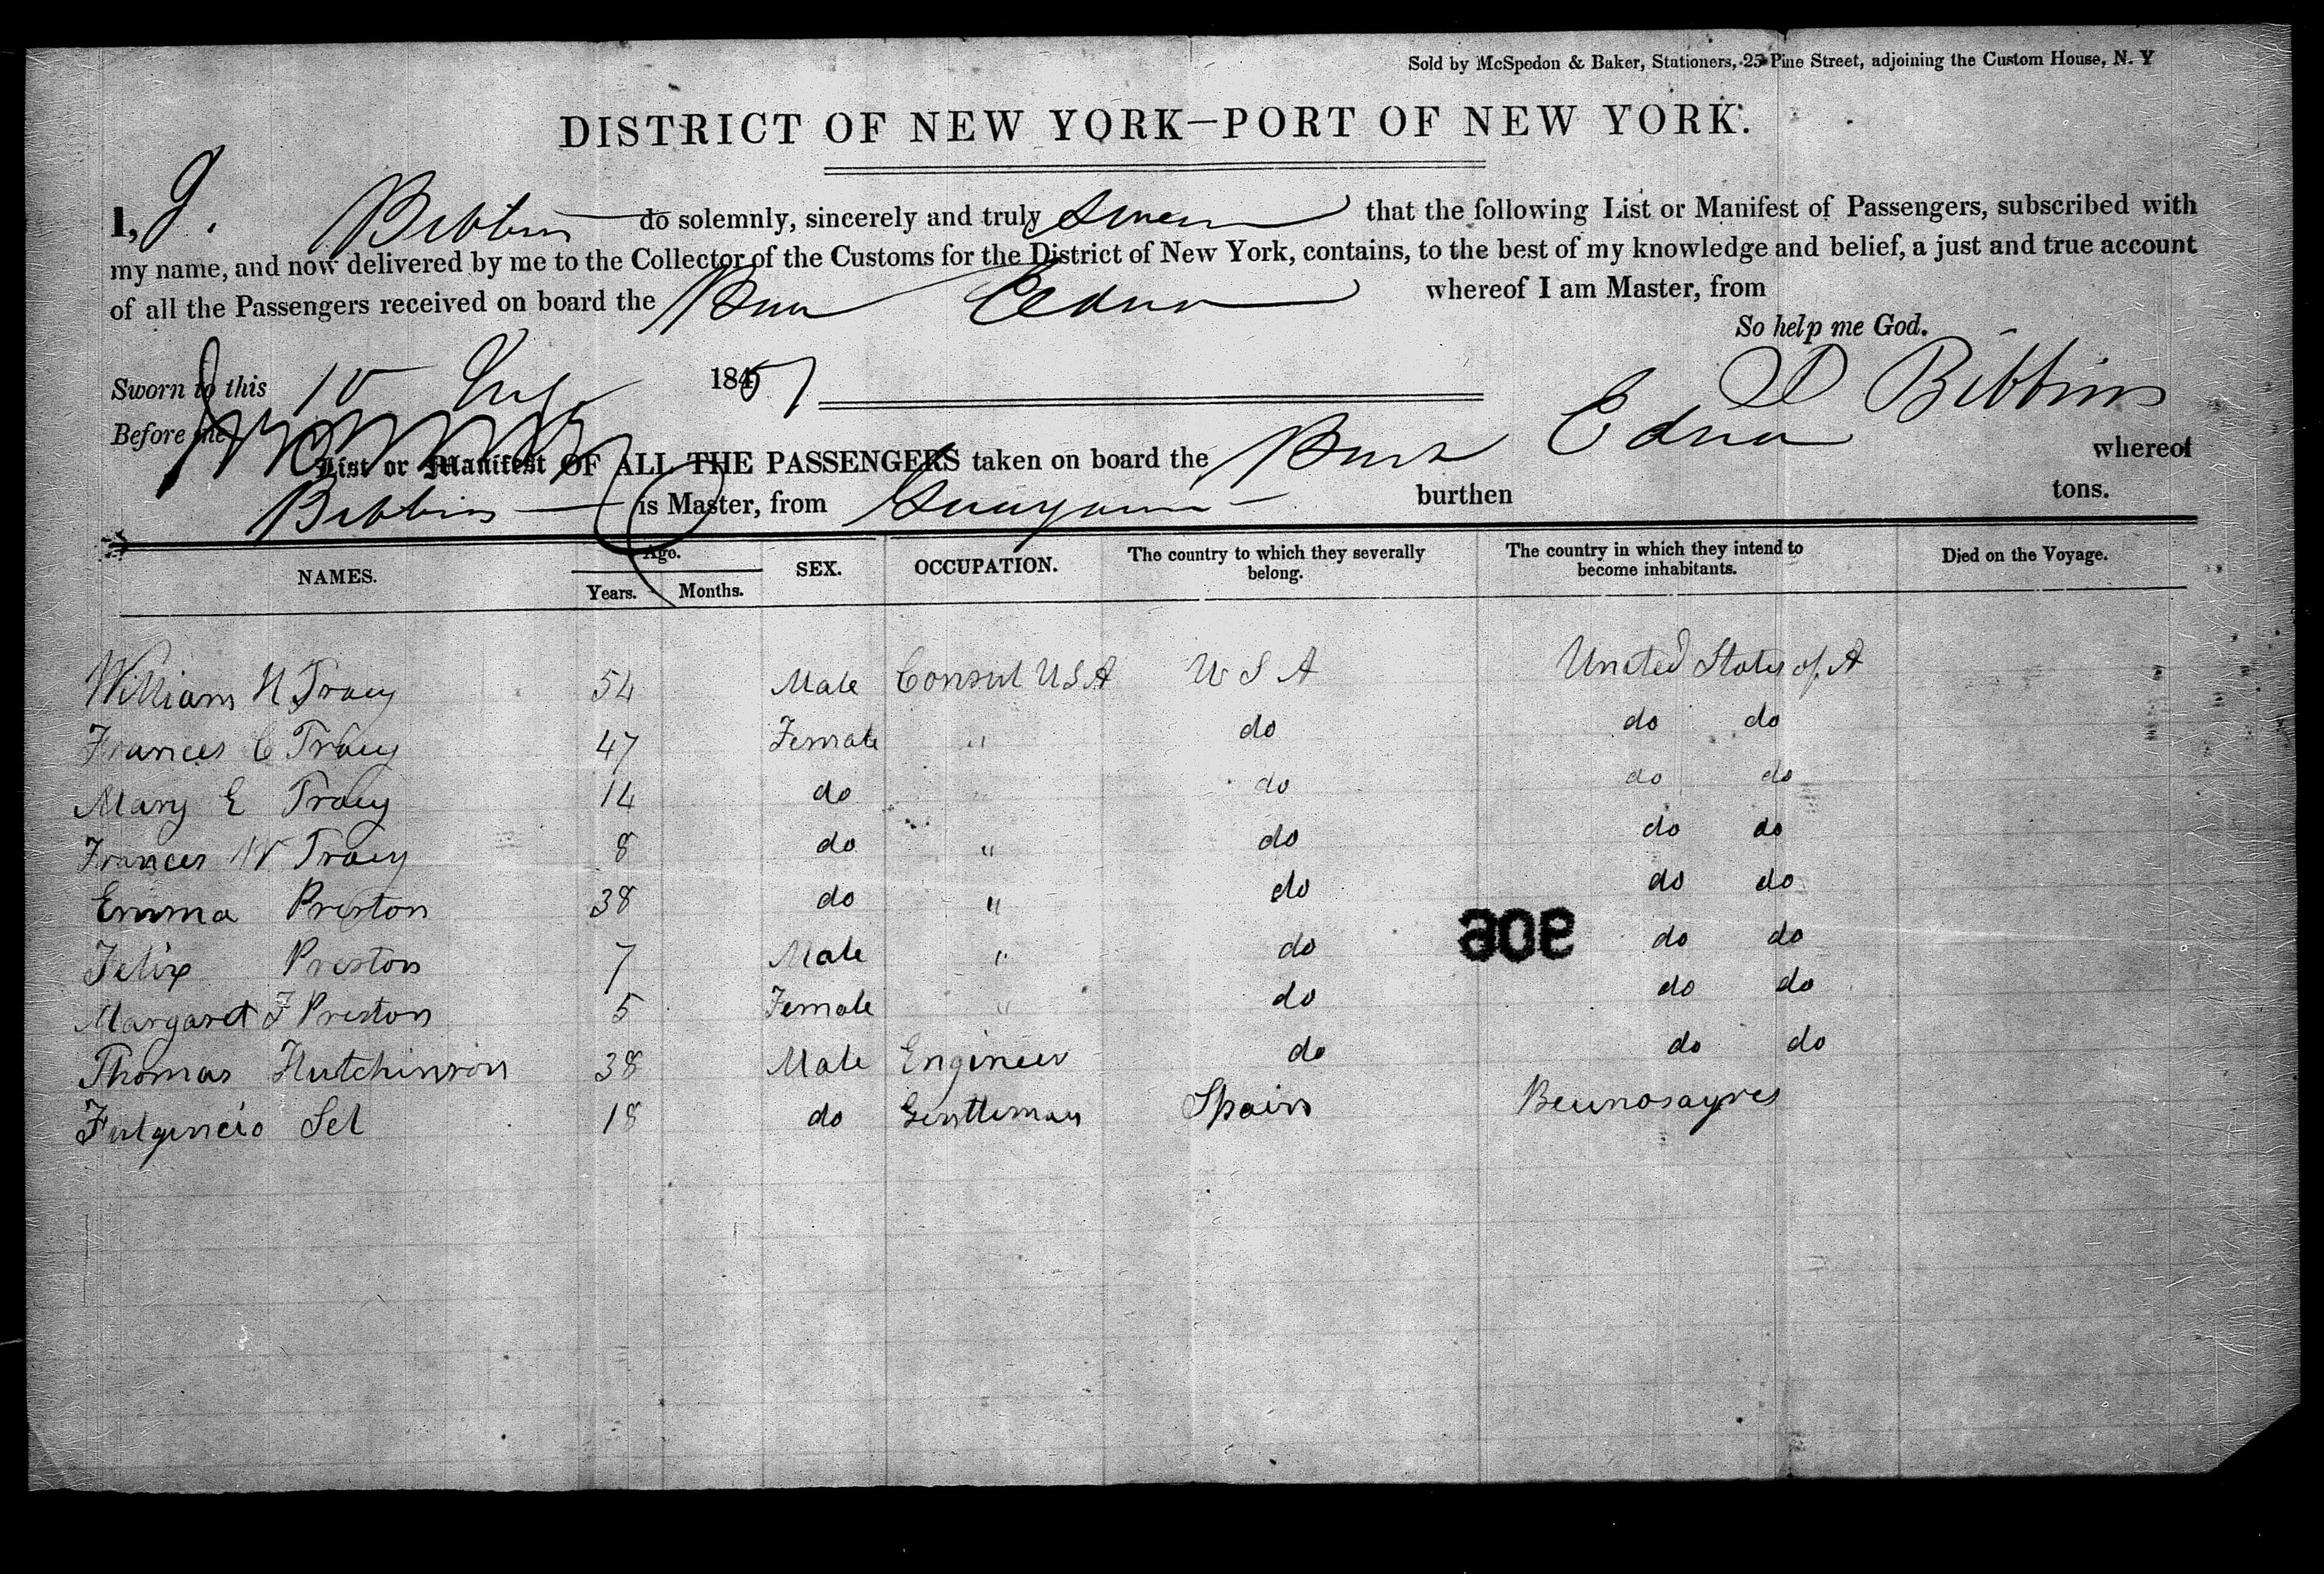 Sold by McSpedon & Baker, Stationers, 25 Pine Street, adjoining the Custom House, N. Y
DISTRICT OF NEW YORK—PORT OF NEW YORK.
I, J. Bibbins do solemnly, sincerely and truly swear that the following List or Manifest of Passengers, subscribed with
my name, and now delivered by me to the Collector of the Customs for the District of New York, contains, to the best of my knowledge and belief, a just and true account
of all the Passengers received on board the Edna whereof I am Master, from
So help me God.
Sworn to this 10 1857
Bibbins
Before me
List or Manifest OF ALL THE PASSENGERS taken on board the Bark Edna whereof
Bibbins is Master, from burthen tons.
NAMES. Age. Years. Months. SEX. OCCUPATION. The country to which they severally belong. The country in which they intend to become inhabitants. Died on the Voyage.
William H Tracy 54 Male Consul USA U S A United States of A
Frances C Tracy 47 Female " do do do
Mary E Tracy 14 do " do do do
Frances W Tracy 8 do " do do do
Emma Preston 38 do " do do do
Felix Preston 7 Male " do do do
906
Margaret F Preston 5 Female " do do do
Thomas Hutchinson 38 Male Engineer do do do
Fulgincio Sel 18 do Gentleman Spain Beunosayres